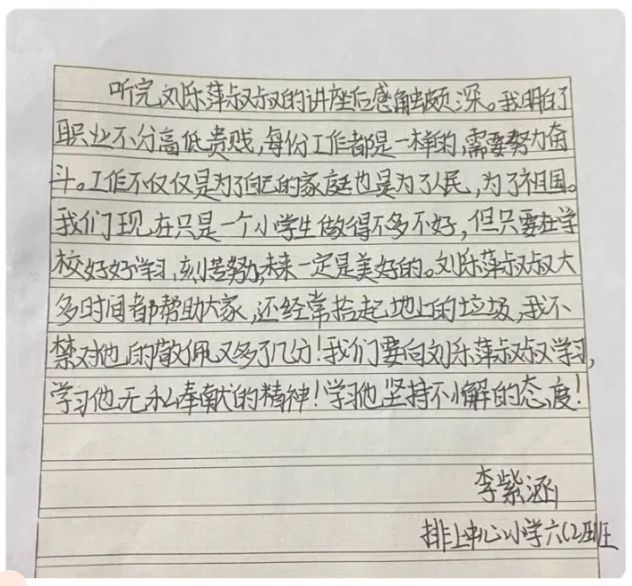 听完刘乐萍叔叔的讲座后感触颇深。我明白了
职业不分高低贵贱,每份工作都是一样的,需要努力奋
斗。工作不仅仅是为了自己的家庭也是为了人民,为了祖国。
我们现在只是一个小学生做得不多不好,但只要在学
校好好学习,刻苦努力,未来一定是美好的。刘乐萍叔叔大
多时间都帮助大家,还经常拾起地上的垃圾,我不
禁对他的敬佩又多了几分!我们要向刘乐萍叔叔学习,
学习他无私奉献的精神!学习他坚持不懈的态度!
李紫涵
排上中心小学六(2)班